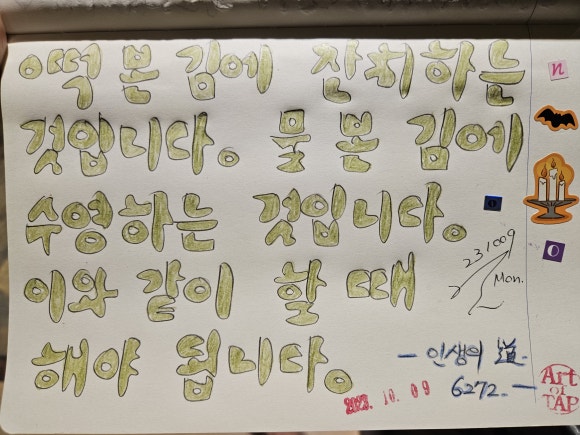 떡 본 김에 잔치하는
것입니다. 물 본 김에
수영하는 것입니다.
이와 같이 할 때
해야 됩니다.
231009
Mon.
- 인생의 道.
6272. -
2023. 10. 09
n
o
o
Art
of
TAP